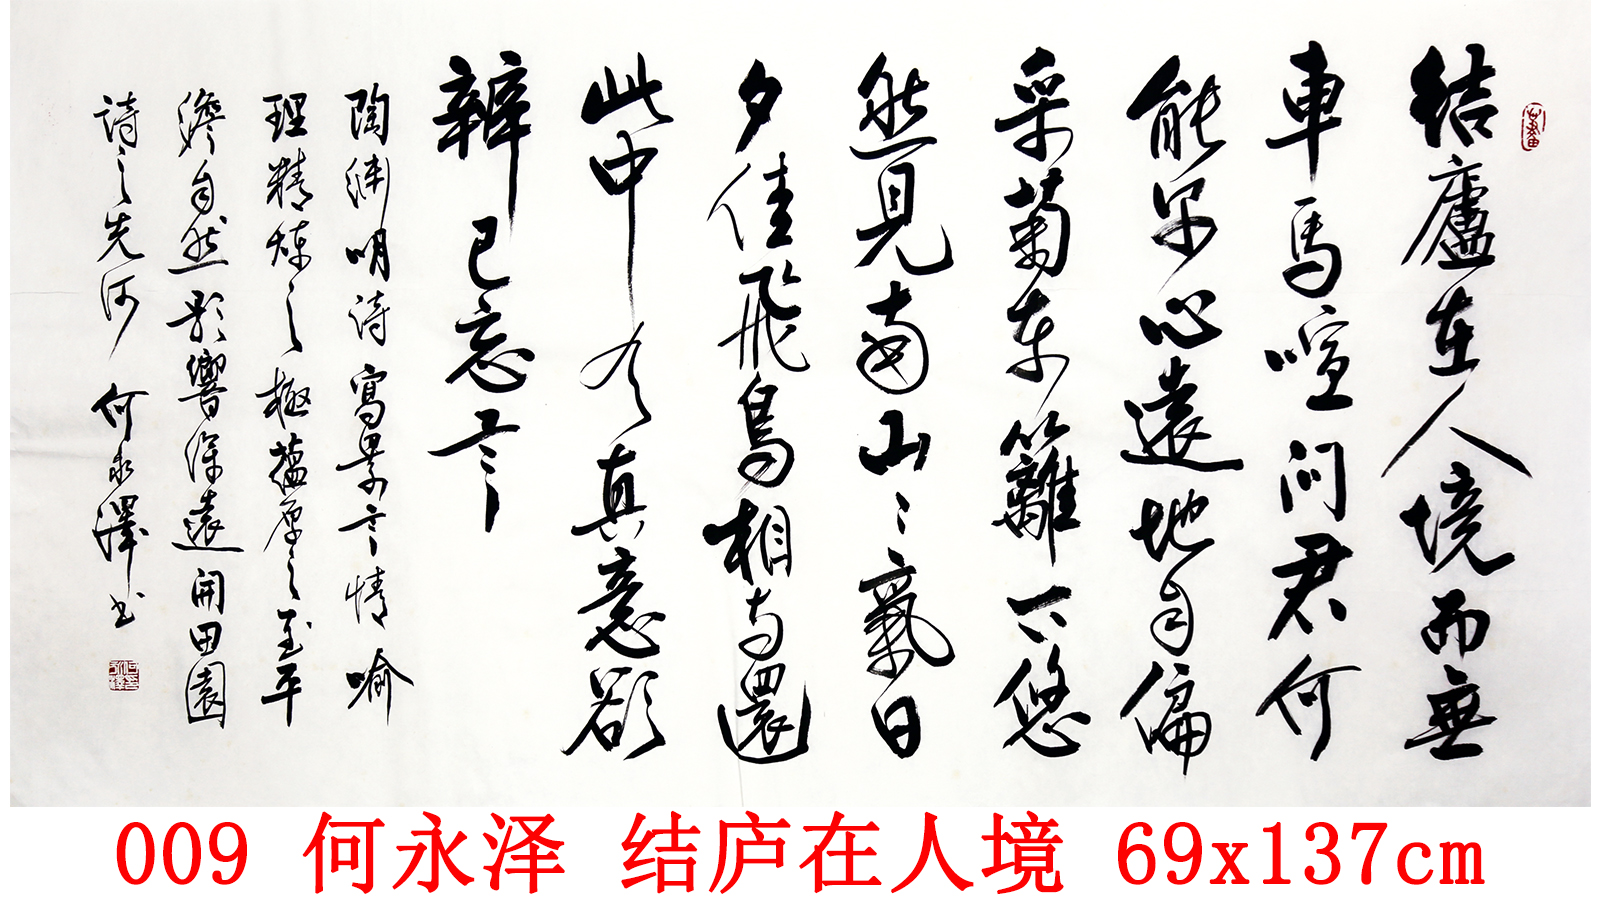 结廬在人境而無
車馬喧问君何
能尔心遠地自偏
采菊东籬下悠
然見南山山氣日
夕佳飛鳥相与還
此中有真意欲
辯已忘言
陶渊明诗寫景言情喻
理精炼之極蕴厚之至平
澹自然影響深遠開田園
诗之先河 何永澤书
009 何永泽 结庐在人境 69x137cm